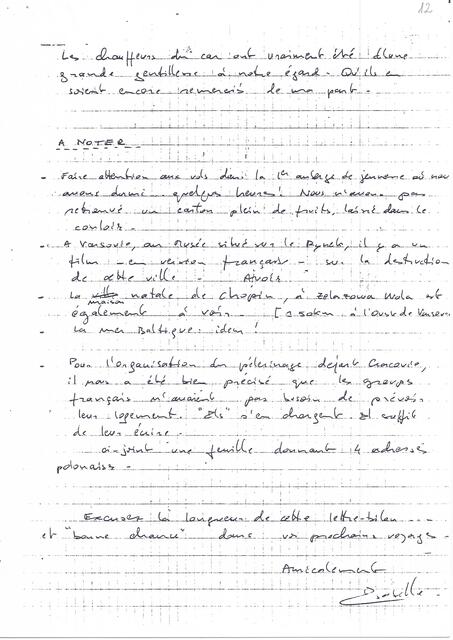 12
Les chauffeurs du car ont vraiment été d'une
grande gentillesse à notre égard. Qu'ils en
soient encore remerciés de ma part.
A NOTER
- Faire attention aux vols dans la 1ère auberge de jeunesse où nous
avons dormi quelques heures! Nous n'avons pas
retrouvé un carton plein de fruits, laissé dans le
couloir.
- A Varsovie, au Musée situé sur le Rynek, il y a un
film - en version française - sur la destruction
de cette ville. A voir
- La maison natale de Chopin, à Zelazowa Wola est
également à voir. [à 50km à l'ouest de Varsovie
- La mer Baltique: idem!
- Pour l'organisation du pèlerinage départ Cracovie,
il nous a été bien précisé que les groupes
français n'avaient pas besoin de prévoir
leur logement. "Ils" s'en chargent. Il suffit
de leur écrire.
ci-joint une feuille donnant 14 adresses
polonaises.
Excusez la longueur de cette lettre-bilan ...
et "bonne chance" dans vos prochains voyages.
Amicalement
Isabelle